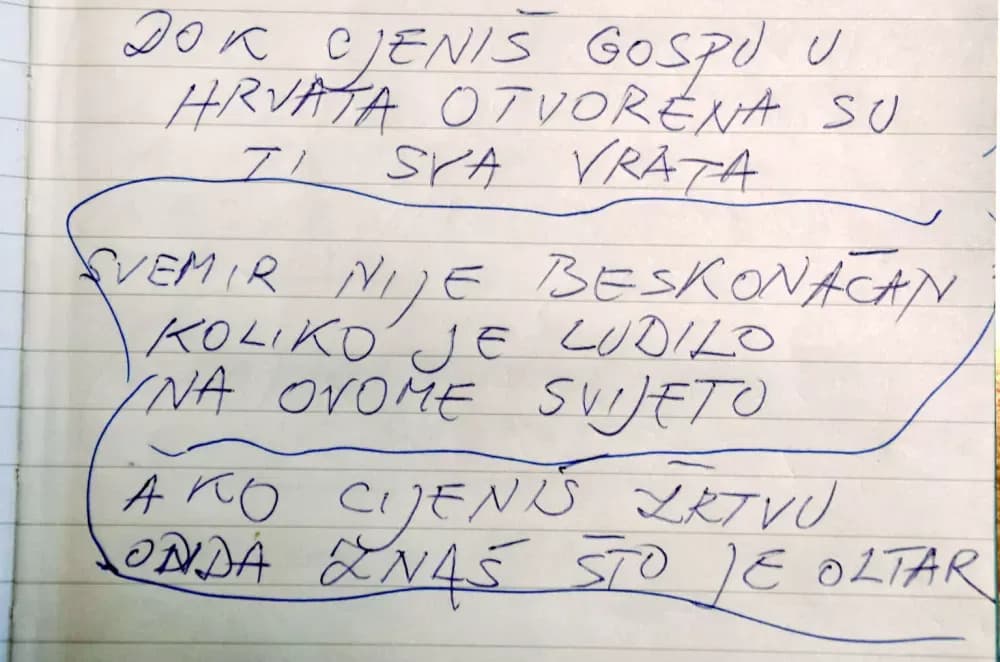 DOK CJENIŠ GOSPU U
HRVATA OTVORENA SU
TI SVA VRATA
SVEMIR NIJE BESKONAČAN
KOLIKO JE LUDILO
NA OVOME SVIJETU
AKO CIJENIŠ ŽRTVU
ONDA ZNAŠ ŠTO JE OLTAR